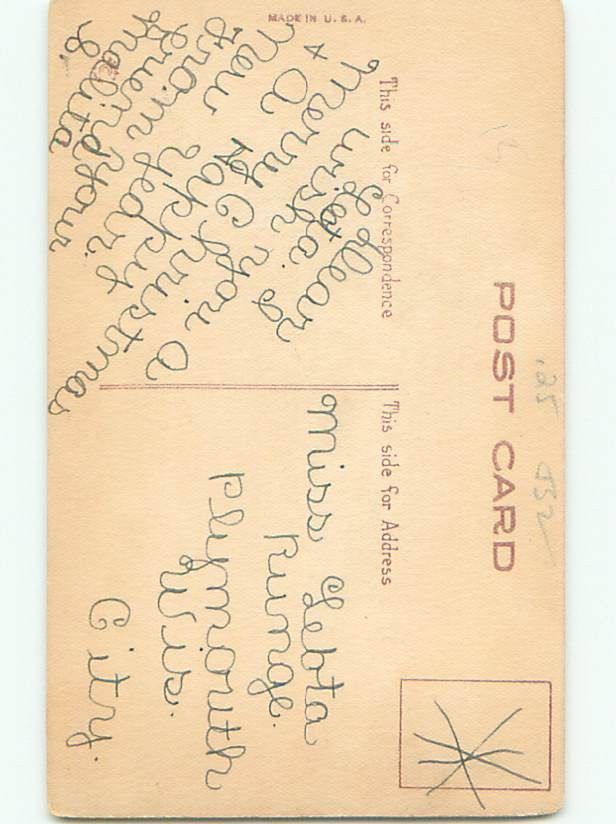 MADE IN U.S.A.
POST CARD
.25 932
This side for Correspondence
Dear
I
wish you a
Merry Christmas
& A Happy
New Year.
From your
Friend
Malita
S.
This side for Address
Miss Lebta
Runge.
Plymouth
Wis.
City.